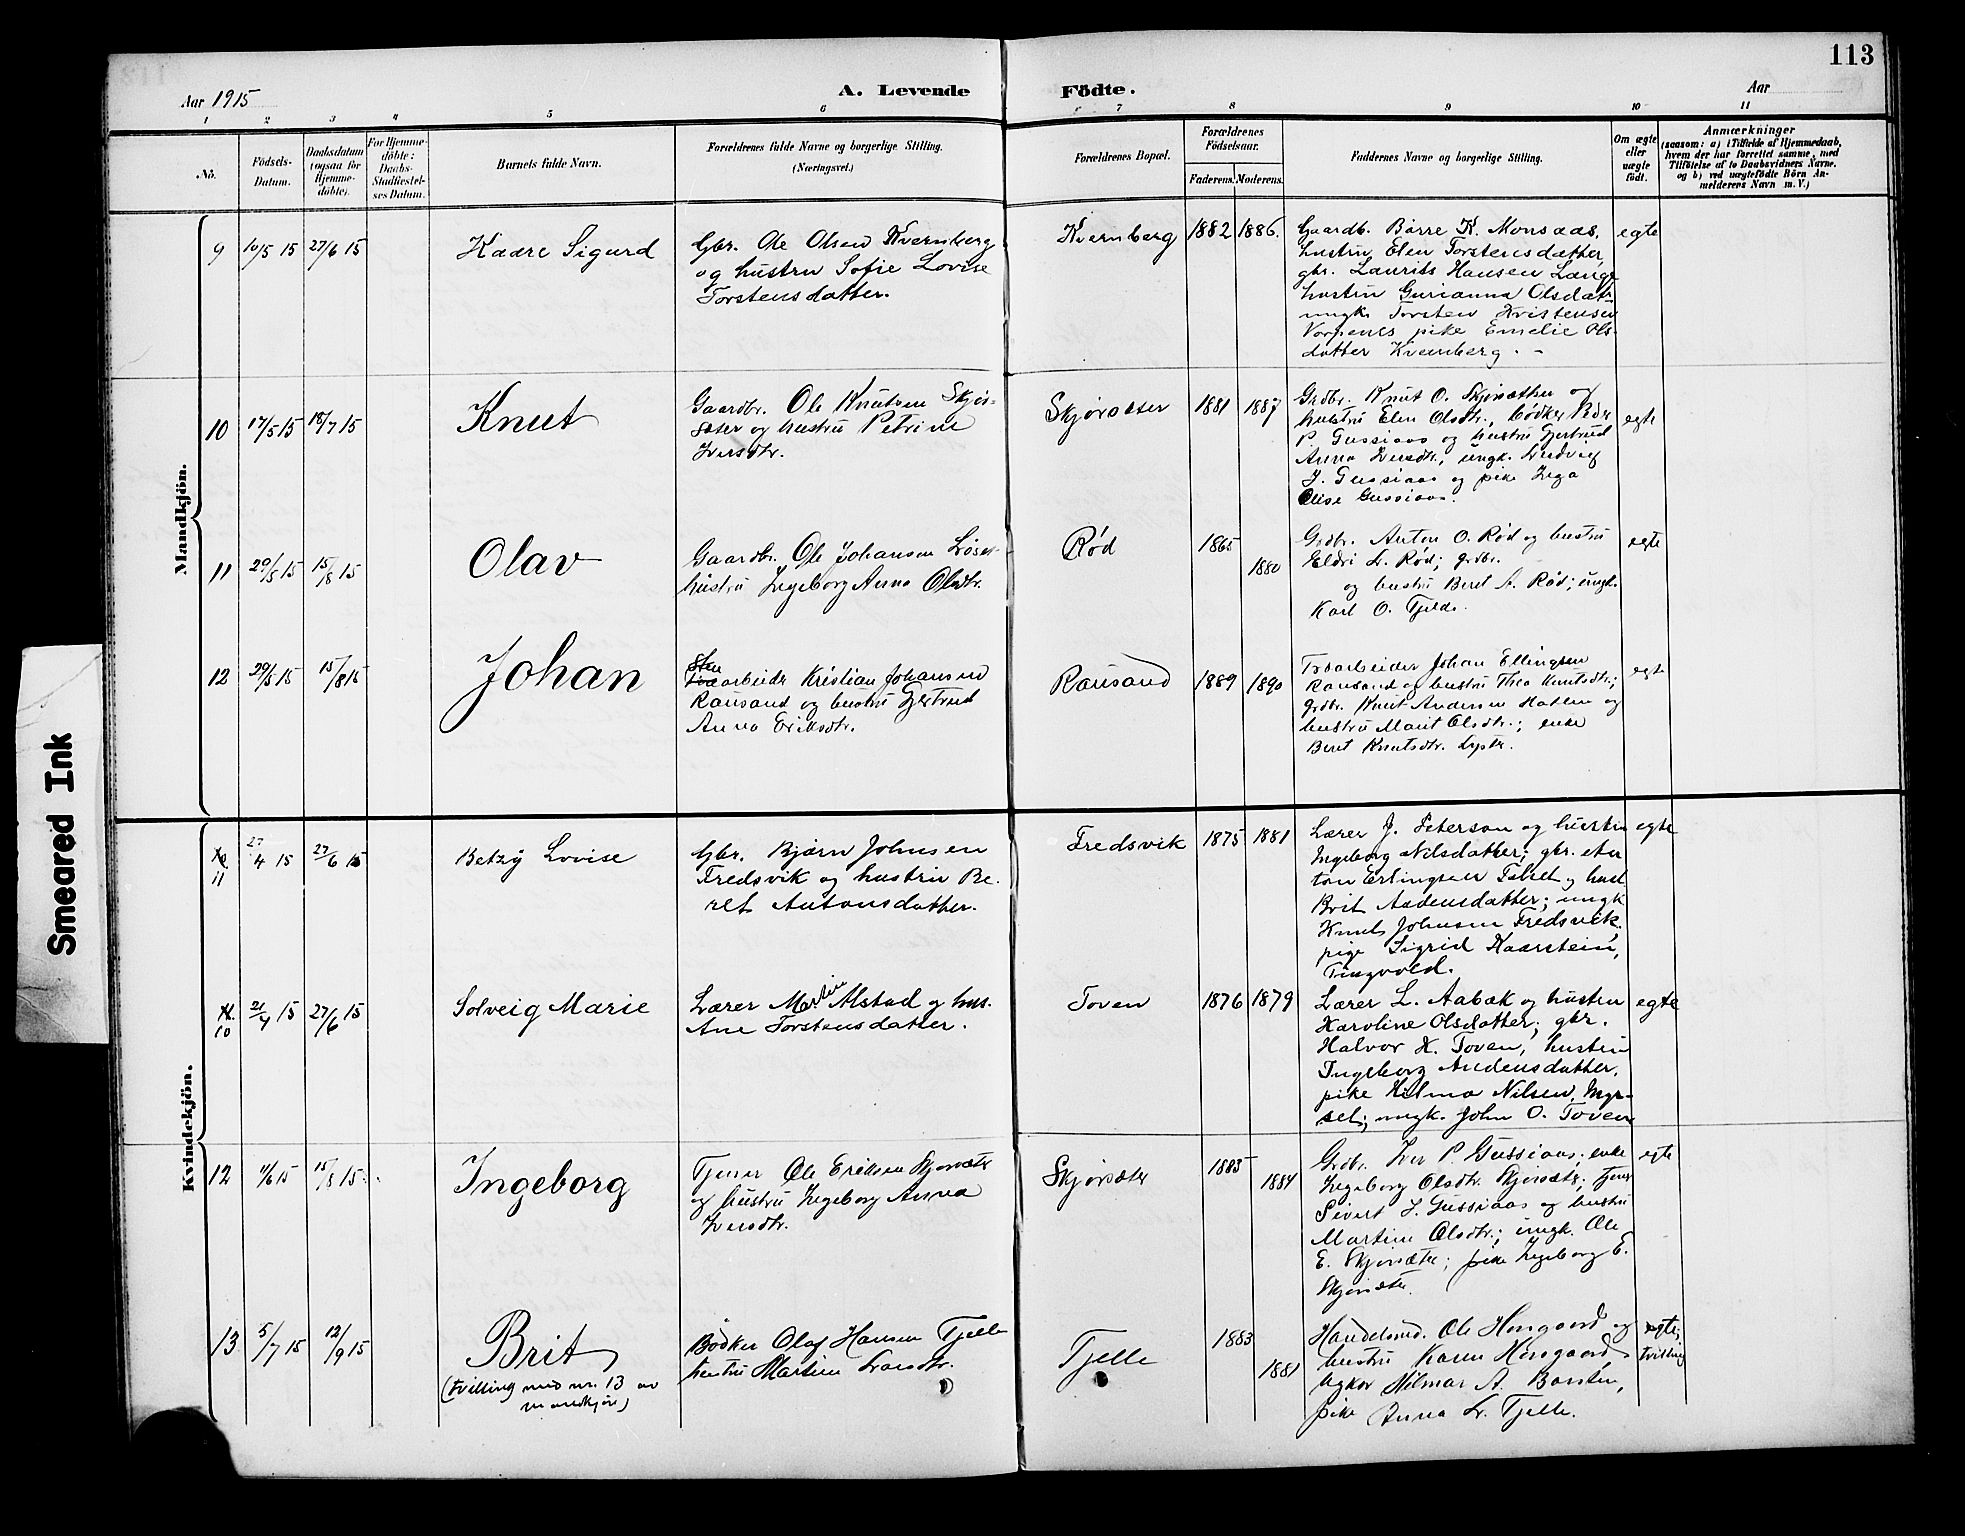 113
Aar 1915
A. Levende
Fødte.
Aar
1 2 3 4 5 6 7 8 9 10 11
No.
Fødsels-
Datum.
Daabsdatum
(ogsaa for
Hjemme-
døbte).
For Hjemme-
døbte:
Daabs-
Stadfæstel-
ses Datum.
Barnets fulde Navn.
Forældrenes fulde Navne og borgerlige Stilling.
(Næringsvei.)
Forældrenes Bopæl.
Forældrenes
Fødselsaar.
Faderens. Moderens.
Faddernes Navne og borgerlige Stilling.
Om ægte
eller
uægte
født.
Anmærkninger
(saasom: a) i Tilfælde af Hjemmedaab,
hvem der har forrettet samme, med
Tilføielse af to Daabsvidners Navne,
og b) ved uægtefødte Børn An-
melderens Navn m. V.)
Mandkjön.
9
10/5 15
27/6 15
Kaare Sigurd
Gbr. Ole Olsen Kvernberg
og hustru Sofie Lovise
Torstensdatter.
Kvernberg
1882
1886.
Gaardb. Børre K. Monsaas,
hustru Elen Torstensdatter,
gbr. Laurits Hansen Lange
hustru Gurianna Olsdatr.
ungk. Torsten Kristensen
Vorpenes pike Emelie Ols-
datter Kvernberg. -
egte
10
17/5 15
18/7 15
Knut
Gaardbr. Ole Knutsen Skjør-
sæter og hustru Petrine
Iversdtr.
Skjørsæter
1881
1887
Grdbr. Knut O. Skjørsæther og
hustru Elen Olsdtr., bødker Peder
P. Gussiaas og hustru Gjertrud
Anna Iversdtr., ungk. Ludvig
I. Gussiaas og pike Inga
Elise Gussiaas.
egte
11
20/5 15
15/8 15
Olav
Gaardbr. Ole Johansen
hustru Ingeborg Anna Olsdtr.
Rød
1865
1880
Grdbr. Anton O. Rød og hustru
Eldri L. Rød; grdbr.
og hustru Beret A. Rød; ungk.
Karl O. Tjelde.
egte
12
29/5 15
15/8 15
Johan
Sten
arbeider Kristian Johansen
Rausand og hustru Gjertrud
Anna Eriksdtr.
Rausand
1889
1890
Træarbeider Johan Ellingsen
Rausand og hustru Thea Knutsdtr.;
grdbr. Knut Andersen Hatlen og
hustru Marit Olsdtr.; enke
Beret Knutsdtr.
egte
Kvindekjön.
11
27/4 15
27/6 15
Betzy Lovise
Gbr. Bjørn Johnsen
Fredsvik og hustru Be-
ret Antonsdatter.
Fredsvik
1875
1881
Lærer J. Peterson og hustru
Ingeborg Nilsdatter; gbr. An
ton Erlingsen Talset og hust
Brit Andensdatter; ungk
Knut Johnsen Fredsvik,
pige Sigrid Kaarstein,
Tingvold.
egte
10
21/4 15
27/6 15
Solveig Marie
Lærer Martin Alstad og hus.
Ane Torstensdatter.
Toven
1876
1879
Lærer L. Aabak og hustru
Karoline Olsdatter; gbr.
Halvor K. Toven, hustru
Ingeborg Andensdatter,
pike Hilma Nilsen, Myr-
set; ungk. John O. Toven
egte
12
11/6 15
15/8 15
Ingeborg
Tjener Ole Eriksen Skjørsæter
og hustru Ingeborg Anna
Iversdtr.
Skjørsæter
1885
1884
Grdbr. Iver P. Gussiaas; enke
Ingeborg Olsdtr. Skjørsæter; tjener
Sivert I. Gussiaas og hustru
Martine Olsdtr.; ungk. Ole
E. Skjørsæter; pike Ingeborg E.
Skjørsæter.
egte
13
5/7 15
12/9 15
Brit
(tvilling med nr. 13 av
mandkjøn)
Bødker Olaf Hansen Tjelle
hustru Martine Larsdtr.
Tjelle
1883
1881
Handelsmd. Ole Horsgaard og
hustru Karen Horsgaard,
ungkar Hilmar A. Børsten,
pike Anna L. Tjelle.
egte;
tvilling
Smeared Ink